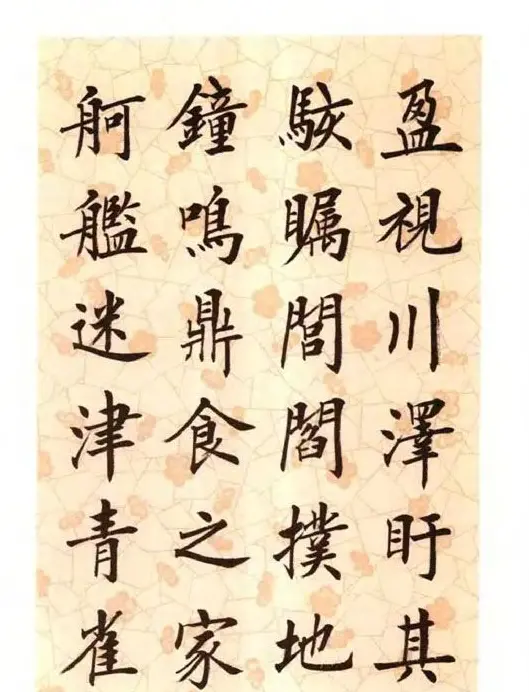 盈視川澤盱其
駭瞩閭閻撲地
鐘鳴鼎食之家
舸艦迷津青雀